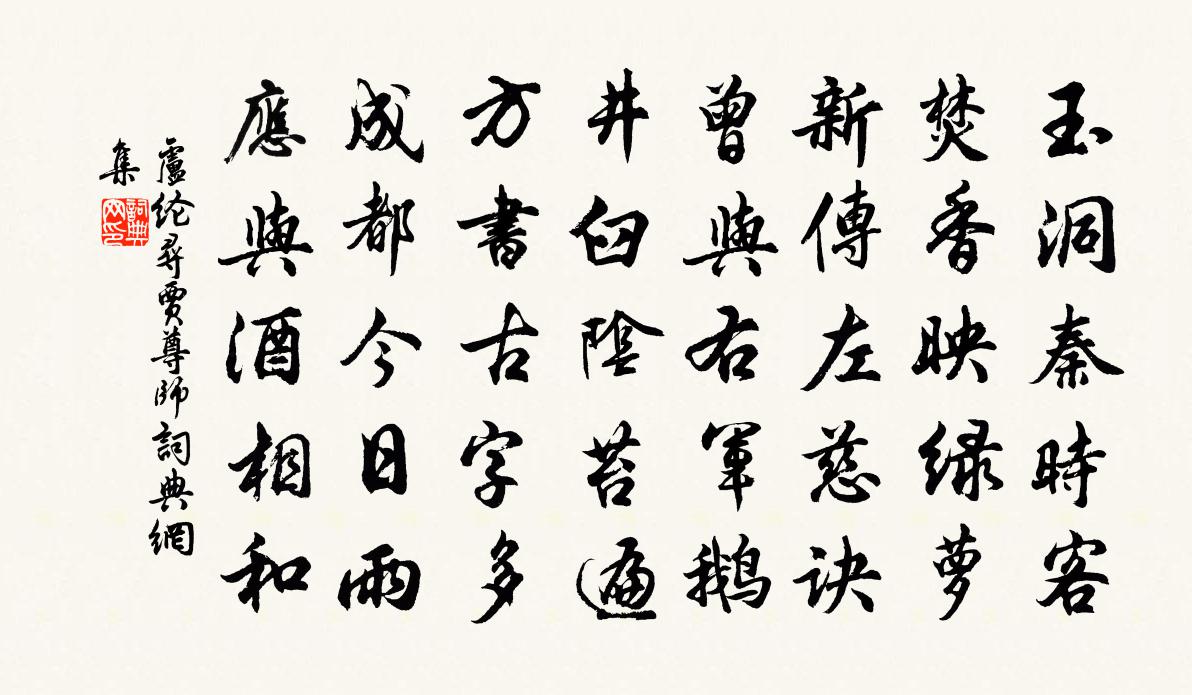 玉洞秦時客
焚香映绿萝
新傳左慈诀
曾與右軍鹅
井臼陰苔遍
方書古字多
成都今日雨
應與酒相和
盧纶尋賈尊師詞典網
集
詞典
网印